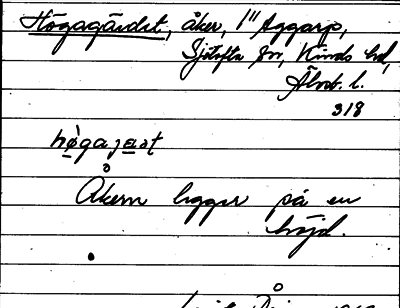 Högagärdet, åker, 1" Aggarp,
Sjötofta sn, Kinds hd,
Älvsb. l.
318
högajæat
Åkern ligger på en
höjd.